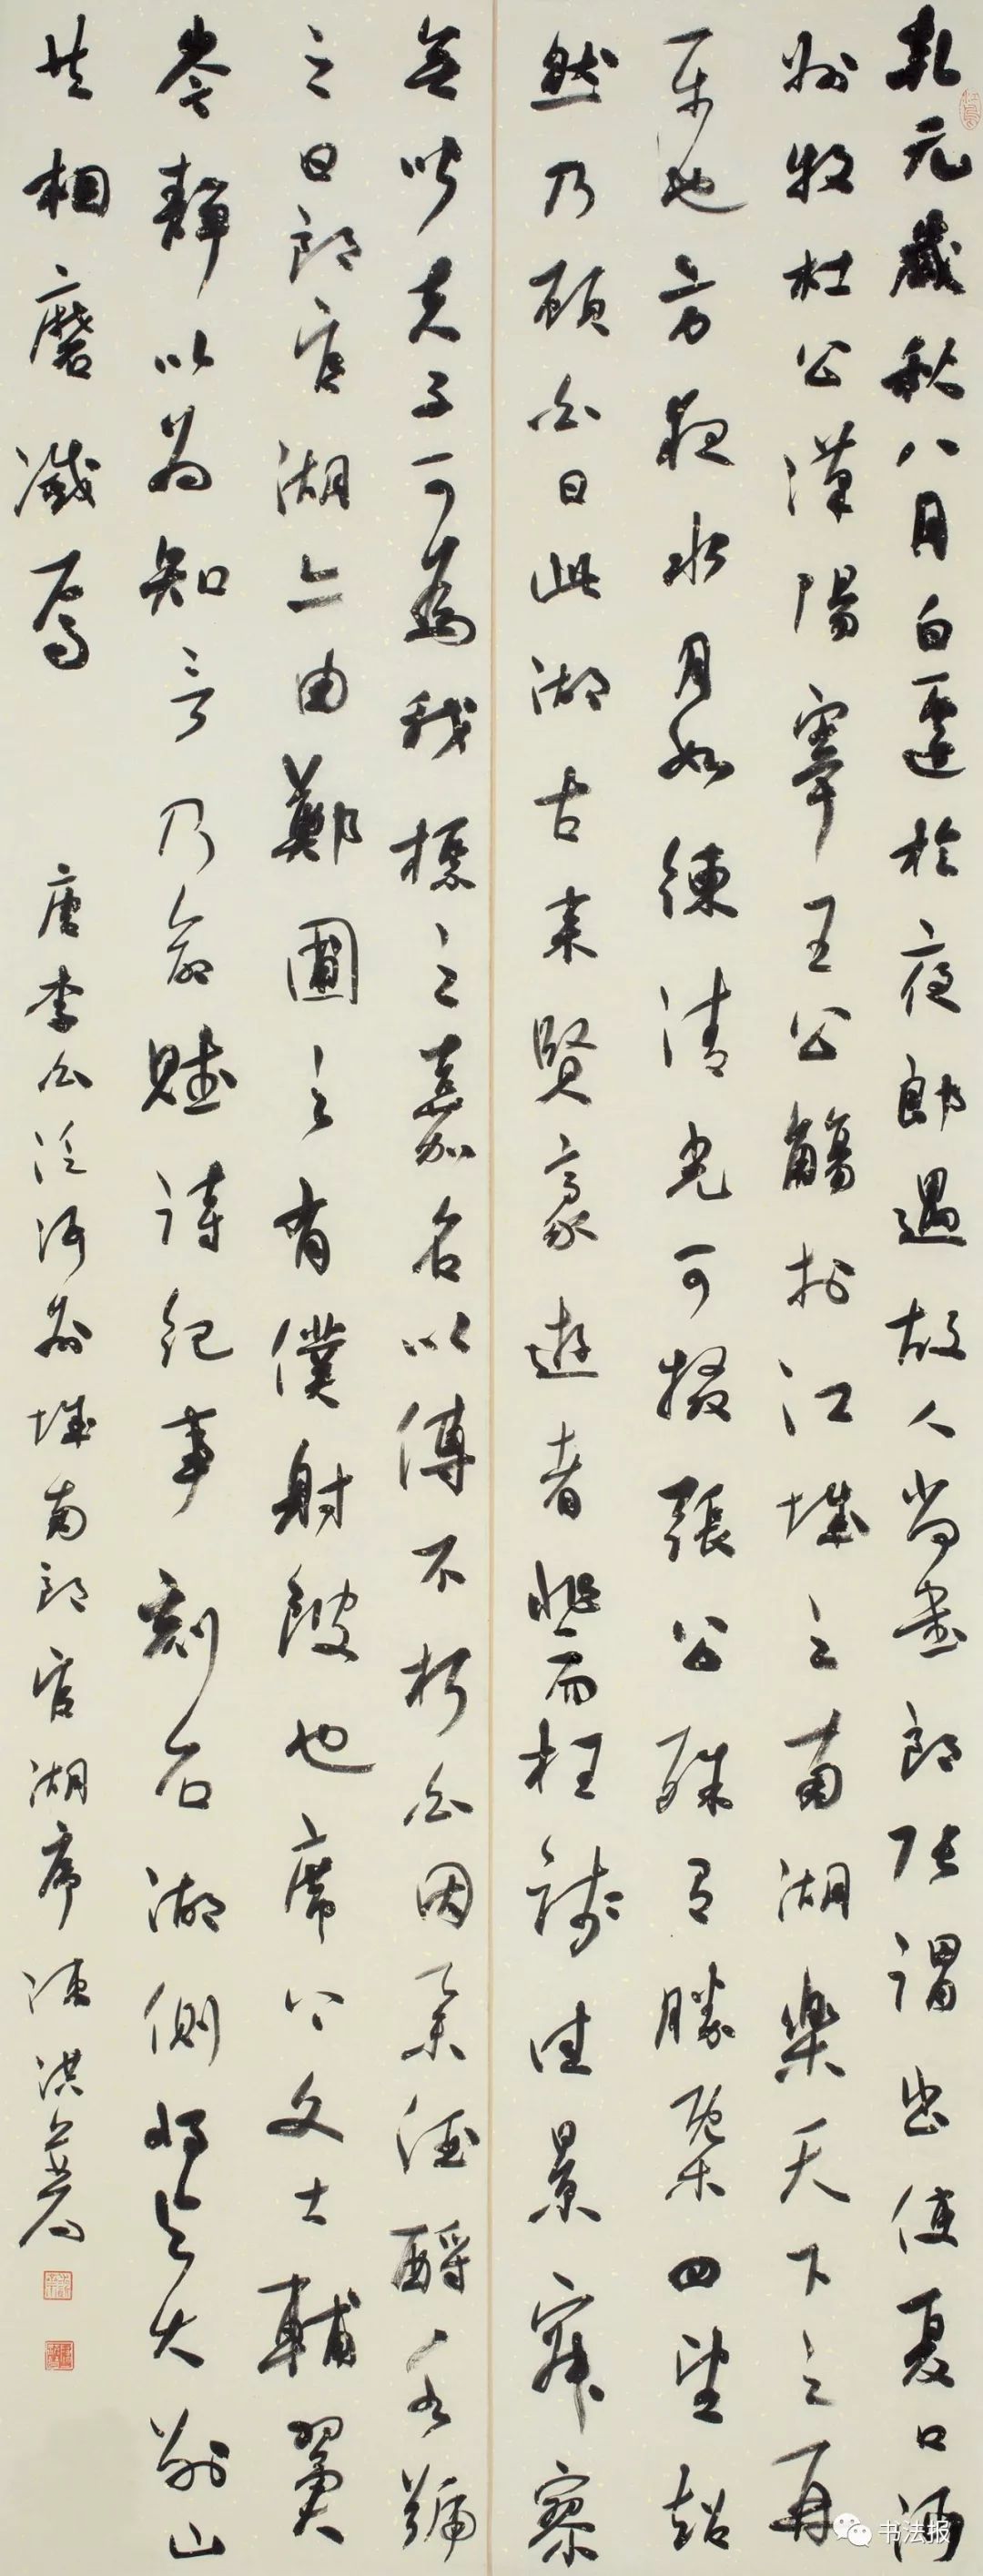 乾元歲秋八月白遷於夜郎遇故人尚書郎張謂出使夏口沔
州牧杜公漢陽宰王公觴於江城之南湖樂天下之再
平也方夜水月如練清光可掇張公殊有勝槩四望超
然乃顧白曰此湖古來賢豪遊者非一而枉踐佳景寂寥
無聞夫子可為我標之嘉名以傳不朽白因舉酒酹水號
之曰郎官湖亦由鄭圃之有僕射陂也席上文士輔翼
岑靜以為知言乃命賦詩紀事刻石湖側將與大別山
共相磨滅焉 唐李白泛沔州城南郎官湖序 洪
书法报